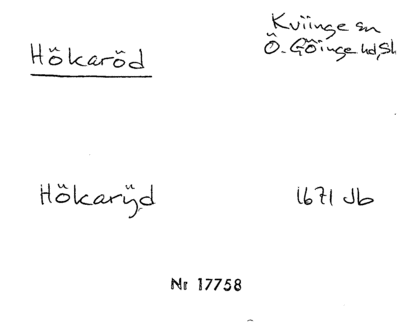 Kviinge sn
Hökaröd
Ö. Göinge hd, Sk
Hökarÿd
1671 Jb
Nr 17758